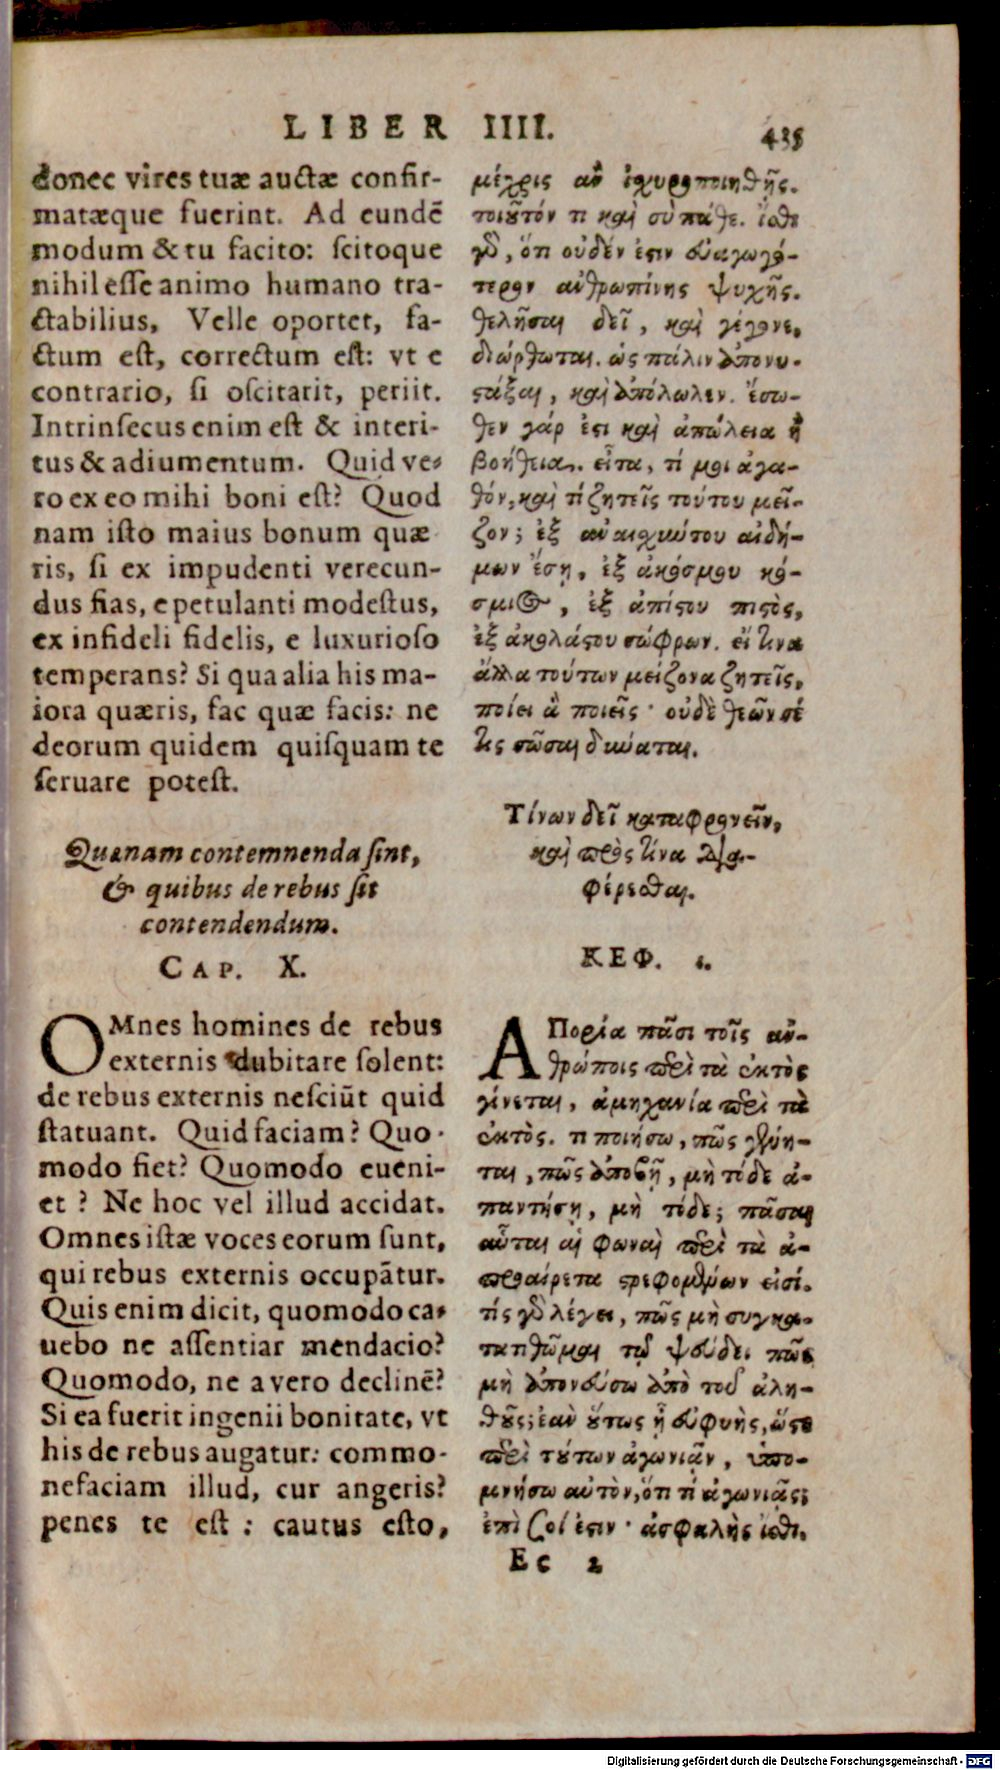 LIBER IIII. 435
donec vires tuæ auctæ confir-
matæque fuerint. Ad eundē
modum & tu facito: scitoque
nihil esse animo humano tra-
ctabilius, Velle oportet, fa-
ctum est, correctum est: vt e
contrario, si oscitarit, periit.
Intrinsecus enim est & interi-
tus & adiumentum. Quid ve-
ro ex eo mihi boni est? Quod
nam isto maius bonum quæ
ris, si ex impudenti verecun-
dus fias, e petulanti modestus,
ex infideli fidelis, e luxurioso
temperans? Si qua alia his ma-
iora quæris, fac quæ facis: ne
deorum quidem quisquam te
seruare potest.
Quænam contemnenda sint,
& quibus de rebus sit
contendendum.
CAP. X.
OMnes homines de rebus
externis dubitare solent:
de rebus externis nesciūt quid
statuant. Quid faciam? Quo-
modo fiet? Quomodo eueni-
et? Ne hoc vel illud accidat.
Omnes istæ voces eorum sunt,
qui rebus externis occupātur.
Quis enim dicit, quomodo ca-
uebo ne assentiar mendacio?
Quomodo, ne a vero declinē?
Si ea fuerit ingenii bonitate, vt
his de rebus augatur: commo-
nefaciam illud, cur angeris?
penes te est: cautus esto,
μέχρις ἂν ἰσχυροποιηθῇς.
τοιοῦτόν τι καὶ σὺ πάθε. ἴσθι
γὰρ, ὅτι οὐδέν ἐστιν εὐαγωγό-
τερον ἀνθρωπίνης ψυχῆς.
θελῆσαι δεῖ, καὶ γέγονε,
διώρθωται. ὡς πάλιν ἀπονυ-
στάξαι, καὶ ἀπόλωλεν. ἔσω-
θεν γάρ ἐστι καὶ ἀπώλεια ἢ
βοήθεια. εἶτα, τί μοι ἀγα-
θόν, καὶ τί ζητεῖς τούτου μεῖ-
ζον; ἐξ ἀναισχύντου αἰδή-
μων ἔσῃ, ἐξ ἀκόσμου κό-
σμιος, ἐξ ἀπίστου πιστὸς,
ἐξ ἀκολάστου σώφρων. εἴ τινα
ἄλλα τούτων μείζονα ζητεῖς,
ποίει ἃ ποιεῖς· οὐδὲ θεῶν σέ
τις σῶσαι δύναται.
Τίνων δεῖ καταφρονεῖν,
καὶ πρὸς τίνα δια-
φέρεσθαι.
ΚΕΦ. ι.
ΑΠορία πᾶσι τοῖς ἀν-
θρώποις περὶ τὰ ἐκτὸς
γίνεται, ἀμηχανία περὶ τὰ
ἐκτὸς. τι ποιήσω, πῶς γένη-
ται, πῶς ἀποβῇ, μὴ τόδε ἀ-
παντήσῃ, μὴ τόδε; πᾶσαι
αὗται αἱ φωναὶ περὶ τὰ ἀ-
προαίρετα στρεφομένων εἰσί.
τίς γὰρ λέγει, πῶς μὴ συγκα-
τατιθῶμαι τῷ ψεύδει πῶς
μὴ ἀπονεύσω ἀπὸ τοῦ ἀλη-
θοῦς; ἐὰν οὕτως ᾖ εὐφυὴς, ὥστε
περὶ τούτων ἀγωνιᾷν, ὑπο-
μνήσω αὐτὸν, ὅτι τί ἀγωνιᾷς;
ἐπὶ σοί ἐστιν· ἀσφαλὴς ἴσθι.
Ee 2
Digitalisierung gefördert durch die Deutsche Forschungsgemeinschaft - DFG